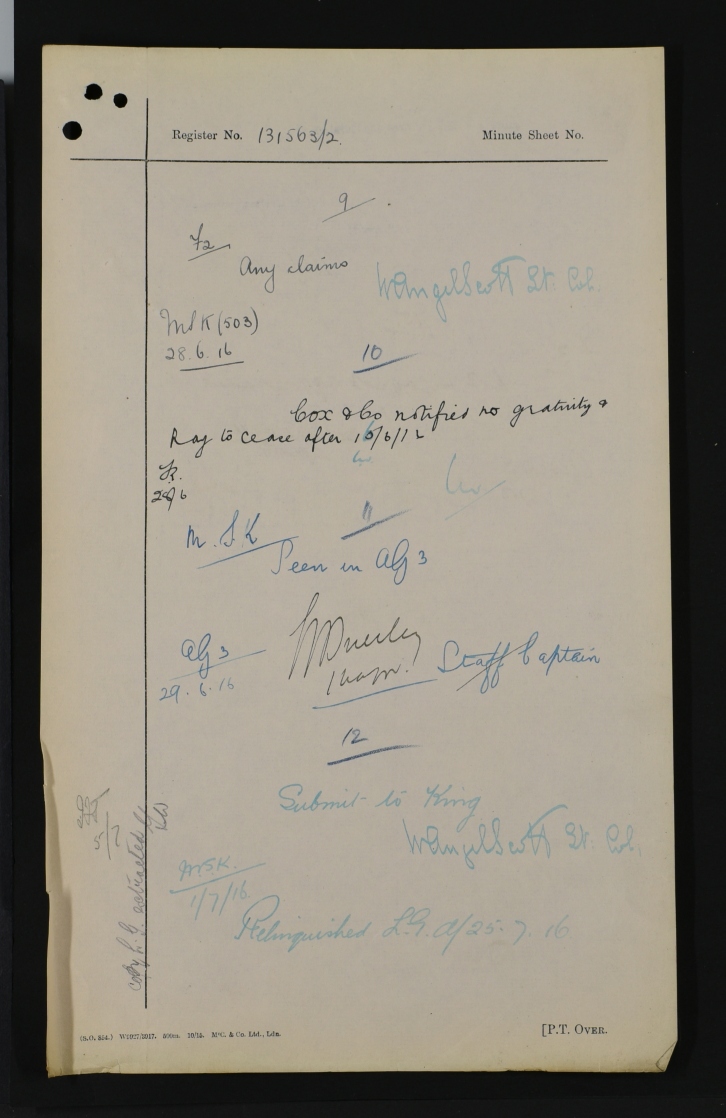 Register No. 131563/2. Minute Sheet No.
9
F2
Any claims
WAngelScott Lt. Col.
MSK (503)
28.6.16
10
Cox & Co notified no gratuity &
Pay to cease after
28/6
11
M.S.K
Seen in AG3
AG3
29.6.16
Staff Captain
12
Submit to King
WAngelScott Lt. Col.
M.S.K.
1/7/16
Relinquished L.G. d/25.7.16
5/7
Copy L.G. extracted
(S.O. 854.) W1927/3917. 500m. 10/15. McC. & Co. Ltd., Ldn.
[P.T. Over.